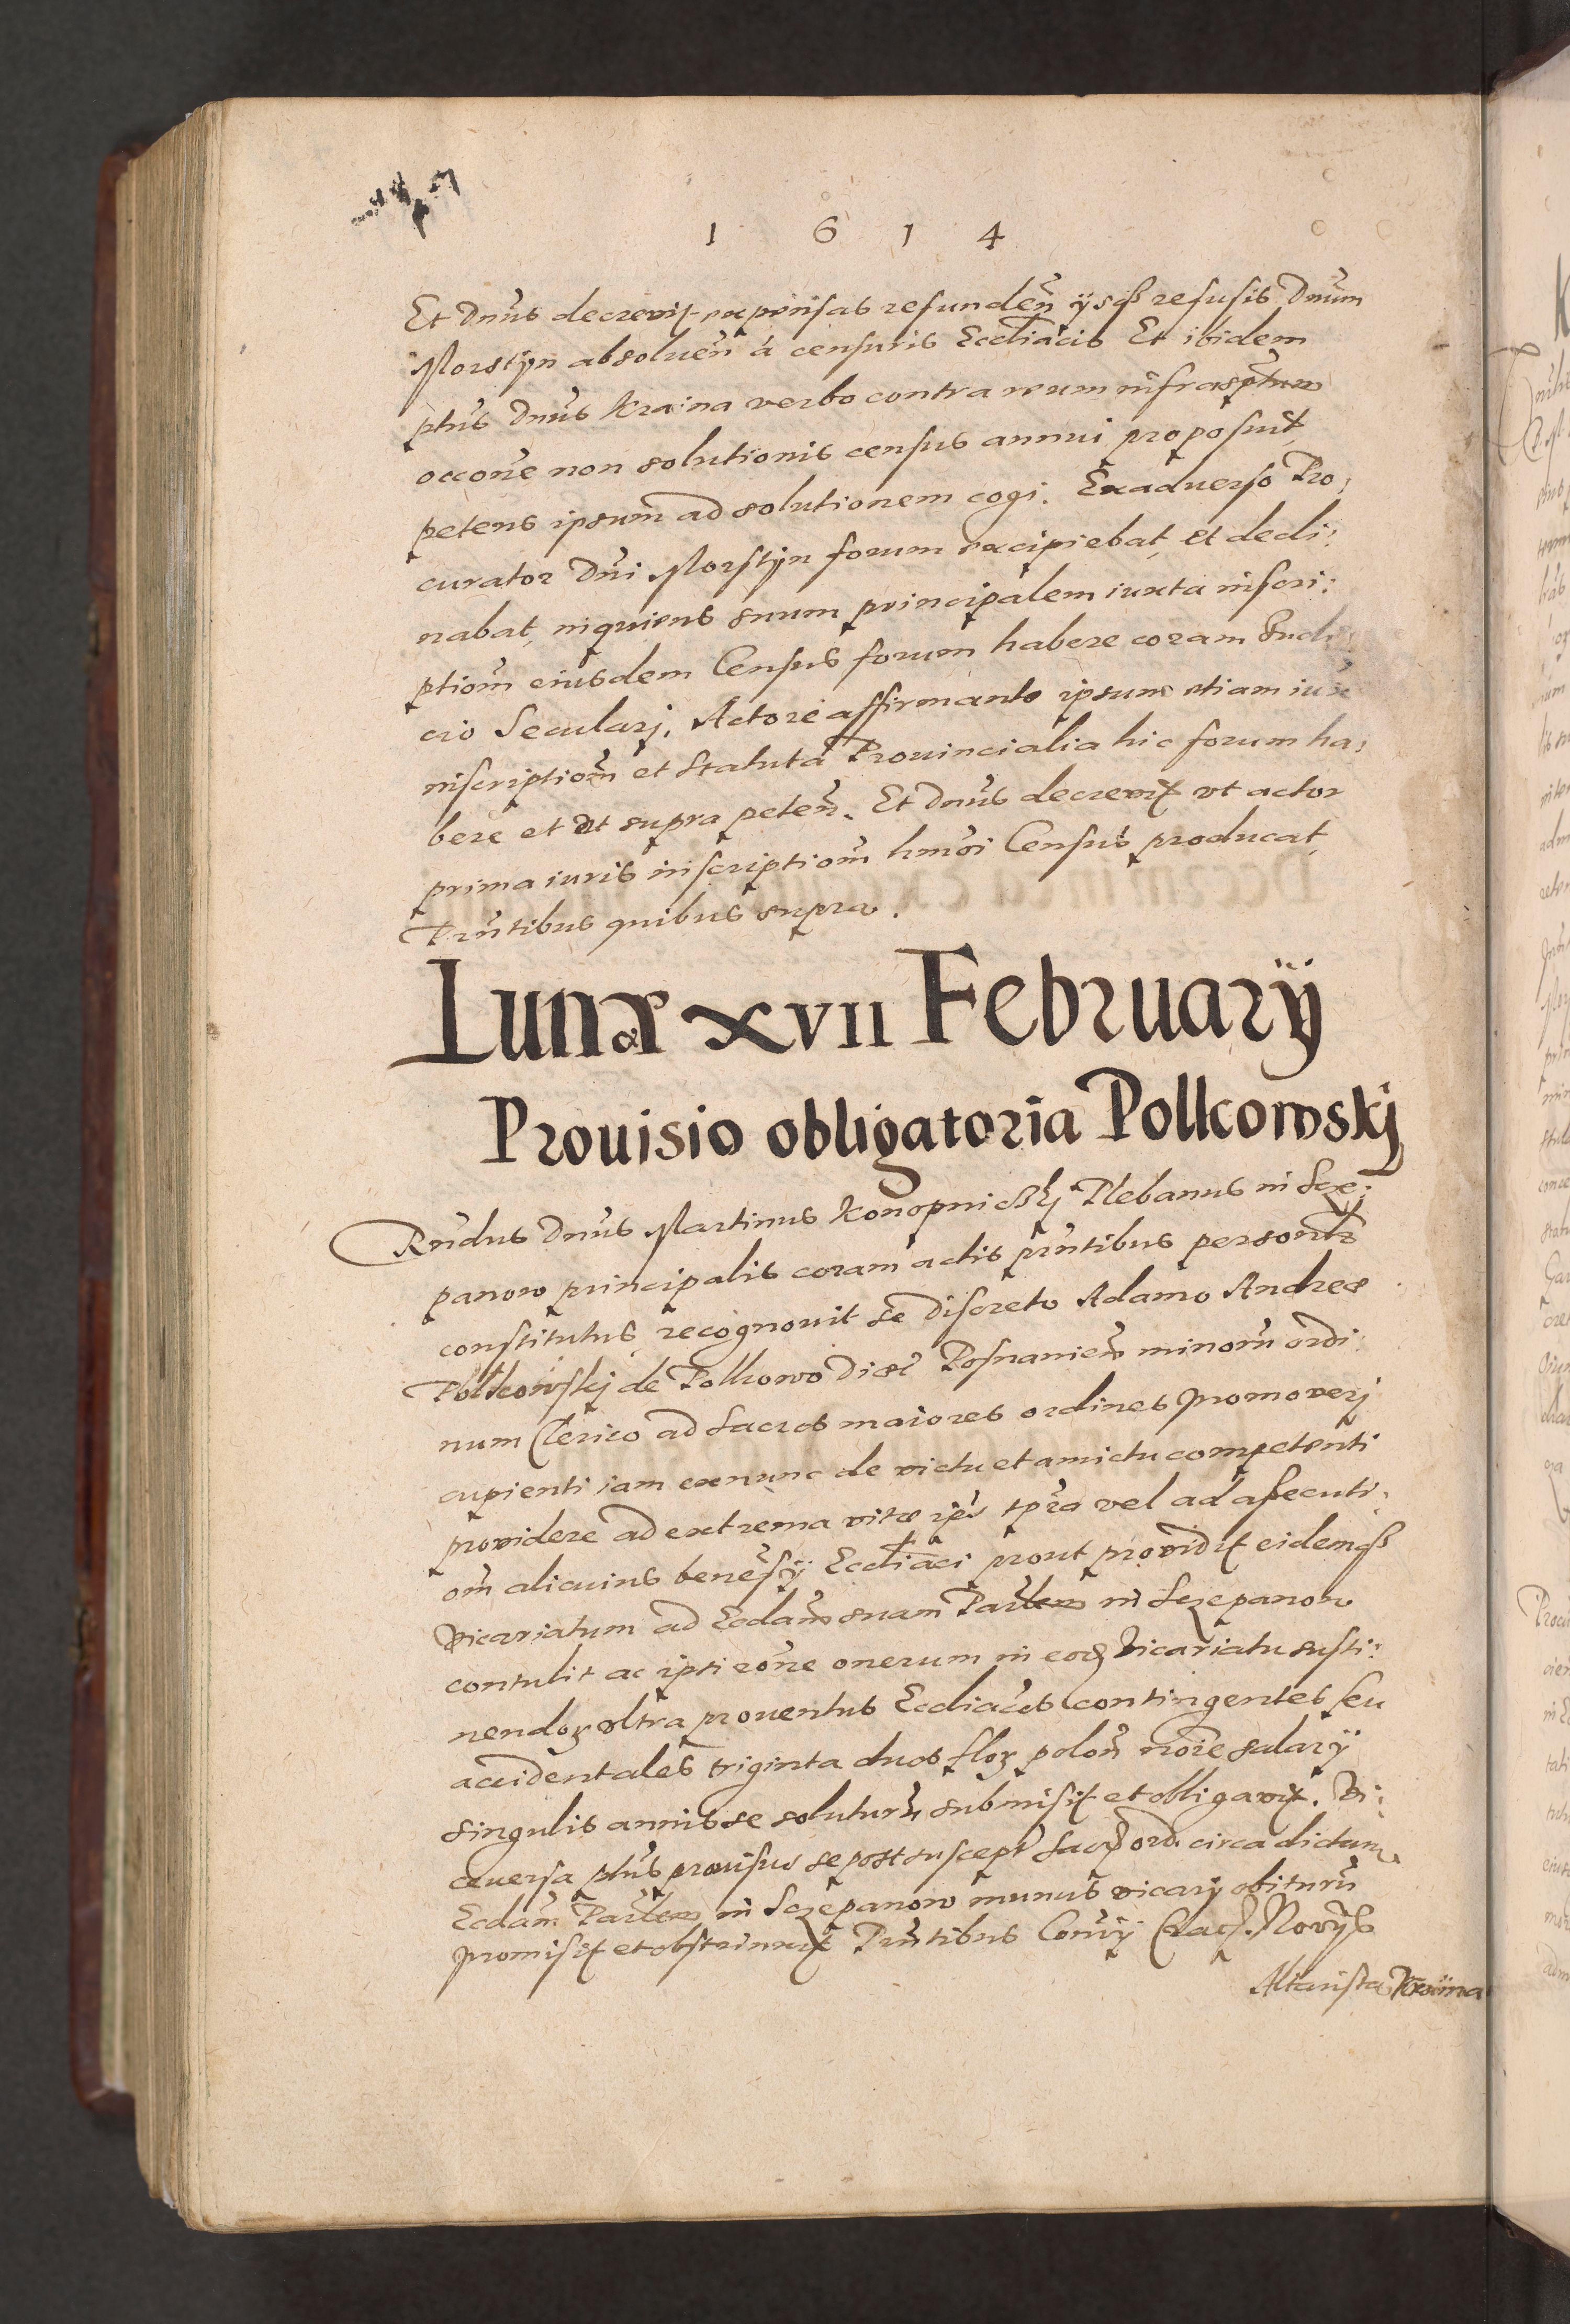 1 6 1 4
Et Dnus decrevit expensas refunden ijsq3 refusis Dnum
Morstijn absoluen á censuris Ecclïacis Et ibidem
ptus Dnus Kraina verbo contra reum infrasptum
occone non solutionis census annui proposuit
petens ipsum ad solutionem cogi. Exaduerso Pro:
curator Dni Morstijn forum excipiebat et decli:
nabat, inquiens suum principalem iuxta inscri:
ptiom eiusdem Census forum habere coram Iudi:
cio Secularj. Actore affirmante ipsum etiam iux
inscriptiom et statuta Prouincialia hic forum ha:
bere et vt supra peten. Et Dnus decrevit vt actor
prima iuris inscriptiom hmoi Census producat
Pntibus quibus supra.
Lunæ xvii Februarij
Prouisio obligatoria Polkowskj
Rndus Dnus Martinus Konopnicskj Plebanus in Scze:
panow principalis coram actis pntibus personlr
constitutus, recognouit se discreto Adamo Andreæ
Polkowskj de Polkowo Diæc Posnanien minorum ordi:
num Clerico ad sacros maiores ordines promoverj
cupienti iam exnunc de victu et amictu competenti
providere ad extrema vitæ ips tpra vel ad assecuti:
om alicuius beneficij Ecclïaci prout providit eidemq3
Vicariatum ad Ecclam suam Parlem in Sczepanow
contulit ac ipsi rone onerum in eod Vicariatu susti:
nendor vltra prouentus Eccliacos contingentes seu
accidentales triginta duos flor polon noie salarij
singulis annis se soluturu submisit et obligavit. Vi:
ceuersa ptus prouisus se post suscept sacros ord. circa dictam
Ecclam Parlem in Sczepanow munus vicarij obituru
promisit et obstrinxit Pntibus Convij Crac. Novijs
Altarista Kraina